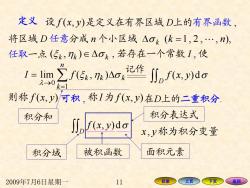 定义 设 f(x, y)是定义在有界区域 D上的有界函数 ,
将区域 D 任意分成 n 个小区域 Δσₖ (k = 1, 2, ⋯, n),
任取一点 (ξₖ, ηₖ) ∈ Δσₖ , 若存在一个常数 I , 使
I = lim_{λ→0} ∑_{k=1}^{n} f(ξₖ, ηₖ)Δσₖ 记作 ∬_D f(x, y)dσ
则称 f(x, y) 可积 , 称 I 为 f(x, y) 在D上的二重积分.
积分和 积分表达式
∬_D f(x, y)dσ x, y 称为积分变量
积分域 被积函数 面积元素
2009年7月6日星期一 11